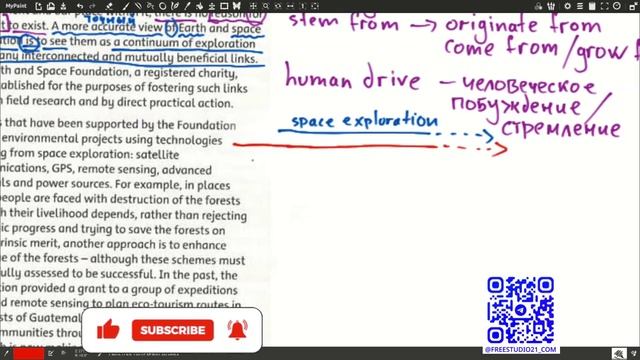 MyPaint
t to exist. A more accurate view of Earth and space
is to see them as a continuum of exploration
any interconnected and mutually beneficial links.
th and Space Foundation, a registered charity,
ablished for the purposes of fostering such links
field research and by direct practical action.
s that have been supported by the Foundation
environmental projects using technologies
g from space exploration: satellite
nications, GPS, remote sensing, advanced
ls and power sources. For example, in places
people are faced with destruction of the forests
h their livelihood depends, rather than rejecting
ic progress and trying to save the forests on
rinsic merit, another approach is to enhance
e of the forests – although these schemes must
ully assessed to be successful. In the past, the
tion provided a grant to a group of expeditions
d remote sensing to plan eco-tourism routes in
sts of Guatemal
mmunities throu
точный
stem from → originate from
come from / grow f
human drive – человеческое
побуждение /
стремление
space exploration
SUBSCRIBE
@FREESTUDIO21_COM